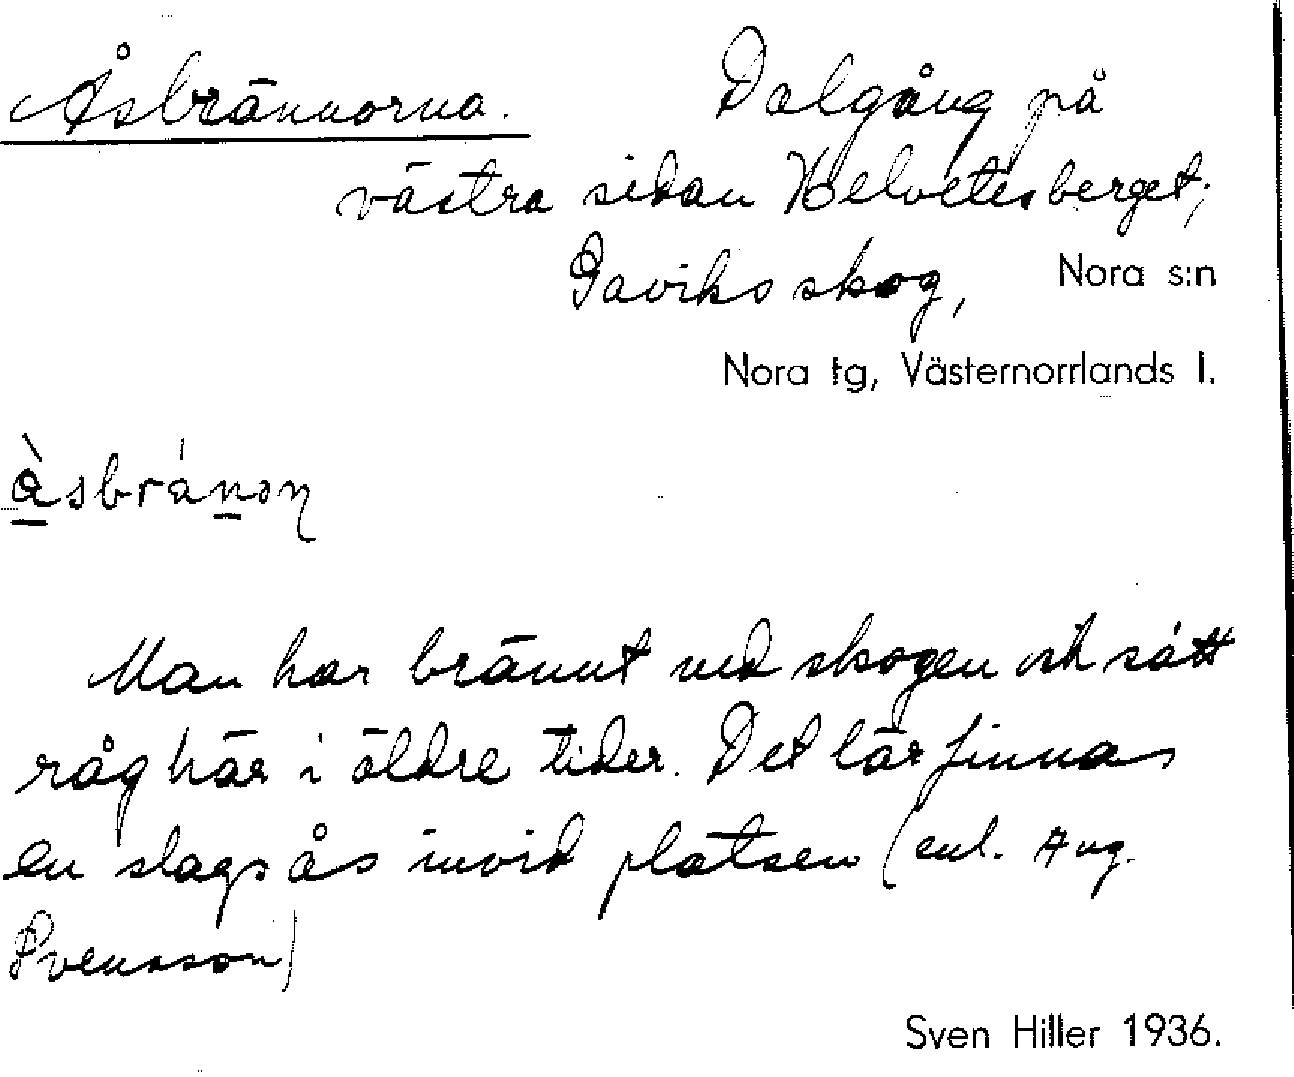 Åsbrännorna. Dalgång på
västra sidan Helvetesberget,
Gaviks skog, Nora s:n
Nora tg, Västernorrlands l.
Man har bränt ned skogen och sått
råg här i äldre tider. Det lär finnas
en slags ås invid platsen (enl. Aug.
Svensson)
Sven Hiller 1936.